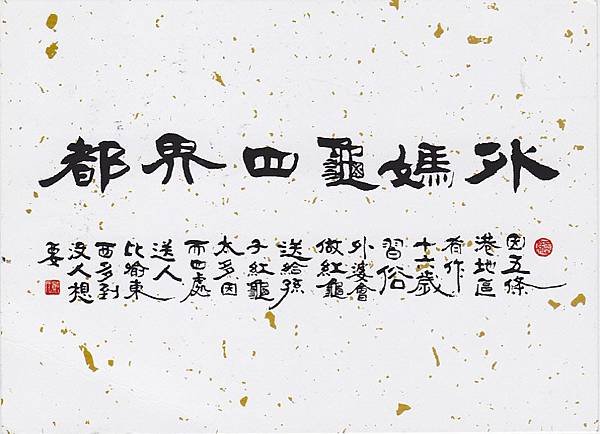 外媽龜四界都
因五條
港地區
有作
十六歲
習俗
外婆會
做紅龜
送給孫
子紅龜
太多因
而四處
送人
比喻東
西多到
沒人想
要